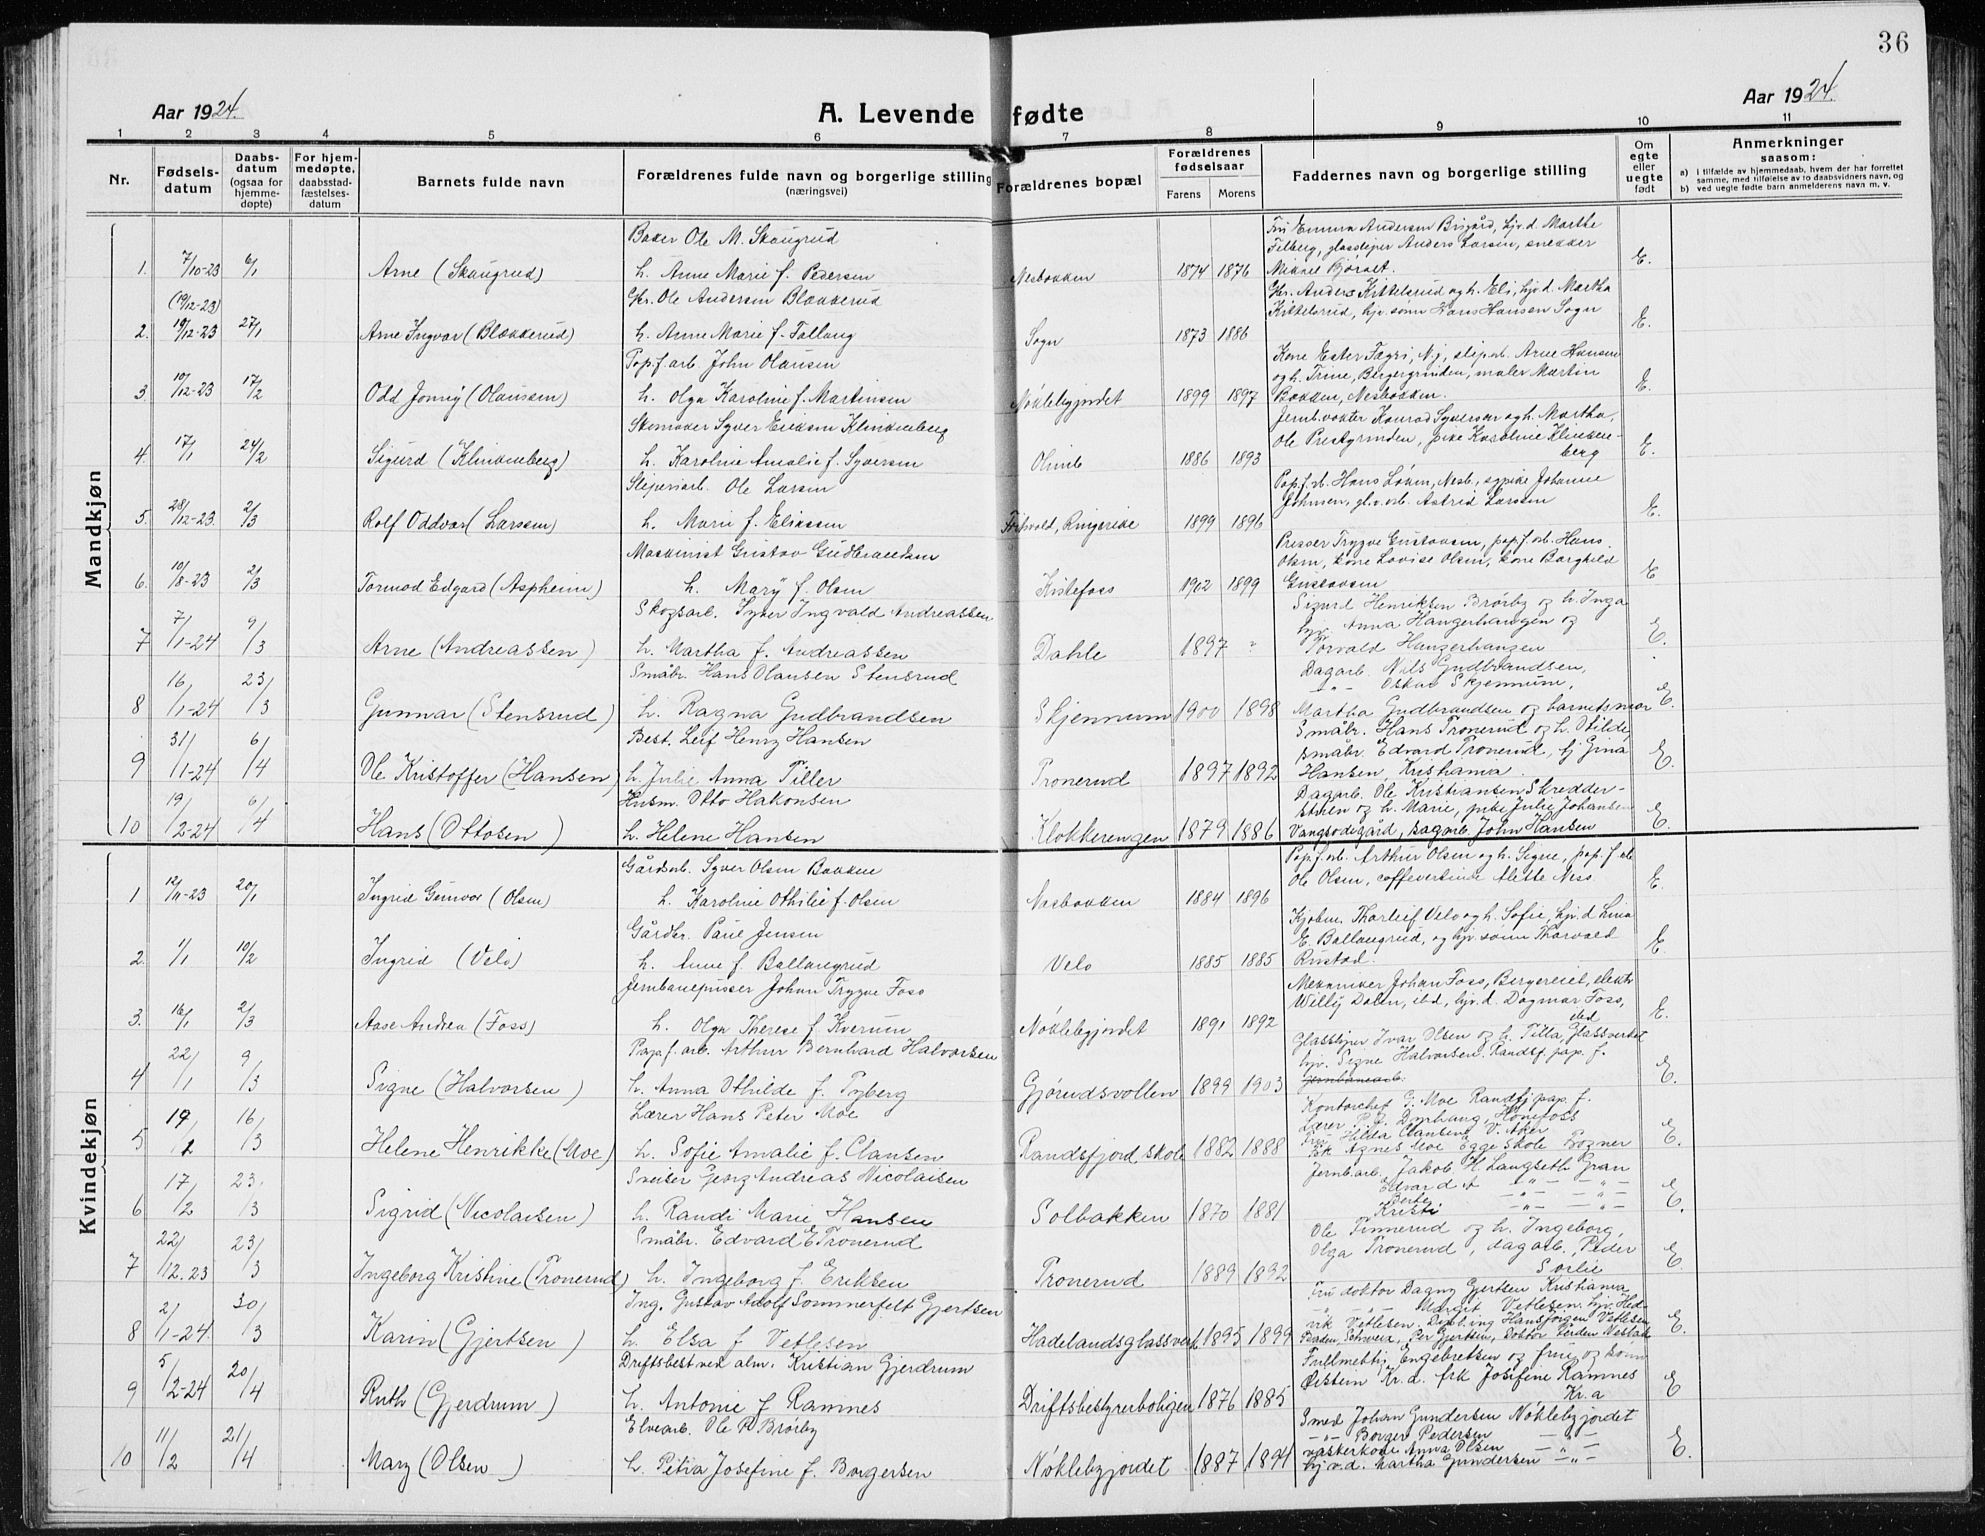 36
Aar 1924.
A. Levende fødte
Aar 1924.
1 2 3 4 5 6 7 8 9 10 11
Nr.
Fødsels-datum
Daabs-datum (ogsaa for hjemme-døpte)
For hjem-medøpte, daabsstad-fæstelses-datum
Barnets fulde navn
Forældrenes fulde navn og borgerlige stilling (næringsvei)
Forældrenes bopæl
Forældrenes fødselsaar
Farens Morens
Faddernes navn og borgerlige stilling
Om egte eller uegte født
Anmerkninger saasom:
a) i tilfælde av hjemmedaab, hvem der har forrettet samme, med tilføielse av to daabsvidners navn, og
b) ved uegte fødte barn anmelderens navn m. v.
Mandkjøn
Baker Ole M. Skaugrud
Fru Emma Andersen Brigård, hjv.d. Marthe
Filberg, glassliper Anders Larsen, snekker
1. 7/10-23 6/1 Arne (Skaugrud) h. Anne Marie f. Pedersen Nesbakken 1874 1876 Mikael Bjørnst. E.
(19/12-23) Gbr. Ole Andersen Blækkerud
Gbr. Anders Kittelsrud og h. Eli, hjv.d. Martha
2. 19/12-23 27/1 Arne Ingvar (Blækkerud) h. Anne Marie f. Tallaug Sogn 1873 1886 Kittelsrud, hjv. sønn Hans Hansen Sogn E.
Pap.f.arb. John Olausen
Kone Ester Fægri, Nj, sliparb. Arne Hansen
og h. Trine, Bergergrinden, maler Martin
3. 10/12-23 17/2 Odd Jonny (Olaussen) h. Olga Karoline f. Martinsen Nøklebyjordet 1899 1897 Bakken, Nesbakken. E.
Skomaker Syver Eriksen Klinkenberg
Jernb.vokter Konrad Syversen og h. Martha,
Ole Prestgrinden, pike Karoline Klinken-
4. 17/1 24/2 Sigurd (Klinkenberg) h. Karoline Amalie f. Syversen Olimb 1886 1893 berg E.
Sliperiarb. Ole Larsen
Pap.f.arb. Hans Løken, Nesb., sypike Johanne
Johnsen, gl.v.arb. Astrid Larssen
5. 28/12-23. 2/3 Rolf Oddvar (Larssen) h. Marie f. Eliassen Ringerike 1899 1896 E.
Maskinist Gustav Gudbrandsen
Presser Trygve Gustavsen, pap.f.arb. Hans
Olsen, kone Lovise Olsen, kone Borghild
6. 10/8-23 2/3 Tormod Edgard (Aspheim) h. Mary f. Olsen Kistefoss 1902 1899 Gustavsen E
Skogsarb. Syver Ingvald Andreassen
Sigurd Henriksen Brørby og h. Inga
Anna Hangerhaugen og
7 7/1-24 9/3 Arne (Andreassen) h. Martha f. Andreassen Dahle 1897 " Torvald Hangerhaugen E.
Småbr. Hans Olausen Stensrud
Dagarb. Nils Gudbrandsen,
-"- Oskar Skjennum,
8 16/1-24 23/3 Gunnar (Stensrud) h. Ragna Gudbrandsen Skjennum 1900 1898 Martha Gudbrandsen og barnets mor E.
Best. Leif Henry Hansen
Småbr. Hans Tronerud og h. Othilde,
småbr. Edvard Tronerud, hj Gina
9 31/1-24 6/4 Ole Kristoffer (Hansen) h. Julie Anna Tiller Tronerud 1897 1892 Hansen, Kristiania. E.
Husm. Otto Hakonsen
Dagarb. Ole Kristiansen Skredder-
stuen og h. Marie, pike Julie Johansen
10 19/2-24 6/4 Hans (Ottosen) h. Helene Hansen Klokkerengen 1879 1886 Vangsodegård, dagarb. John Hansen E.
Kvindekjøn
Gårdarb. Syver Olsen Bakken
Pap.f.arb. Arthur Olsen og h. Signe, pap.f.arb
1 12/11-23 20/1 Ingrid Gunvor (Olsen) h. Karoline Othilie f. Olsen Nesbakken 1884 1896 Ole Olsen, caffevertinde Alette Ness E.
Gårdbr. Paul Jensen
Kjøbm. Tharleif Velo og h. Sofie, hjv.d Lina
E. Ballangrud, og hjv. sønn Thorvald
2. 1/1 10/2 Ingrid (Velo) h. Anne f. Ballangrud Velo 1885 1885 Rustad. E.
Jernbanepusser Johan Trygve Foss
Mekaniker Johan Foss, Bergereiet, elektr.
Willy Dalen, ibd, hjv.d. Dagmar Foss,
3. 16/1 2/3 Aase Andrea (Foss) h. Olga Therese f. Kverum Nøklebyjordet 1891 1892 ibd E.
Pap.f.arb. Arthur Bernhard Halvorsen
Glassliper Ivar Olsen og h. Tilla, Glassverket
hjv. Signe Halvorsen. Randsf. pap. f.
4 22/1 9/3 Signe (Halvorsen) h. Anna Othilde f. Nyberg Gjørudsvollen 1899 1903 jernbanearb. E.
Lærer Hans Peter Moe
Kontorchef G. Moe Randsfj pap. f.
Lærer P. J. Dyrhaug, Hønefoss
Fru Hilda Clausen V. Aker
5 19/2 16/3 Helene Henrikke (Moe) h. Sofie Amalie f. Clausen Randsfjord skole 1882 1888 Frk Agnes Moe Egge skole E.
Sveiser Georg Andreas Nicolaisen
Jernb.arb. Jakob H. Langseth Gran
Edvard A -"- -"-
Berte -"- -"-
6 17/2 23/3 Sigrid (Nicolaisen) h. Randi Marie Hansen Solbakken 1870 1881 Kristi -"- -"- E.
Småbr. Edvard E Tronerud
Ole Finnerud og h. Ingeborg,
Olga Tronerud, dagarb. Peder
7 22/12.23 23/3 Ingeborg Kristine (Tronerud) h. Ingeborg f. Eriksen Tronerud 1889 1892 Sorlie E.
Ing. Gustav Adolf Sommerfelt Gjertsen
Fru doktor Dagny Gjertsen Kristiania
-"- -"- Margit Vetlesen. hjv. Hed-
vik Vetlesen. Dipl.ing Hansjørgen Vetlesen
8 2/1-24. 30/3 Karin (Gjertsen) h. Elsa f Vetlesen Hadelandsglassverk 1895 1899 Baden, Schweiz, Per Gjertsen, Doktor E.
Driftsbest ved alm. Kristian Gjerdrum
Fullmektig Engebretsen og frue og sønn
9 5/2-24 20/4 Ruth (Gjerdrum) h. Antonie f Ramnes Driftsbestyrerboligen 1876 1885 Øistein Kr.a. frk Josefine Ramnes Kr.a E
Elvearb. Ole P. Brørby
Smed Johan Gundersen Nøklebyjordet
-"- Borger Pedersen -"-
vaskerkone Anna Olsen -"-
10 11/2 21/4 Mary (Olsen) h. Petra Josefine f. Borgersen Nøklebyjordet 1887 1894 hjv.d. Martha Gundersen -"- E.